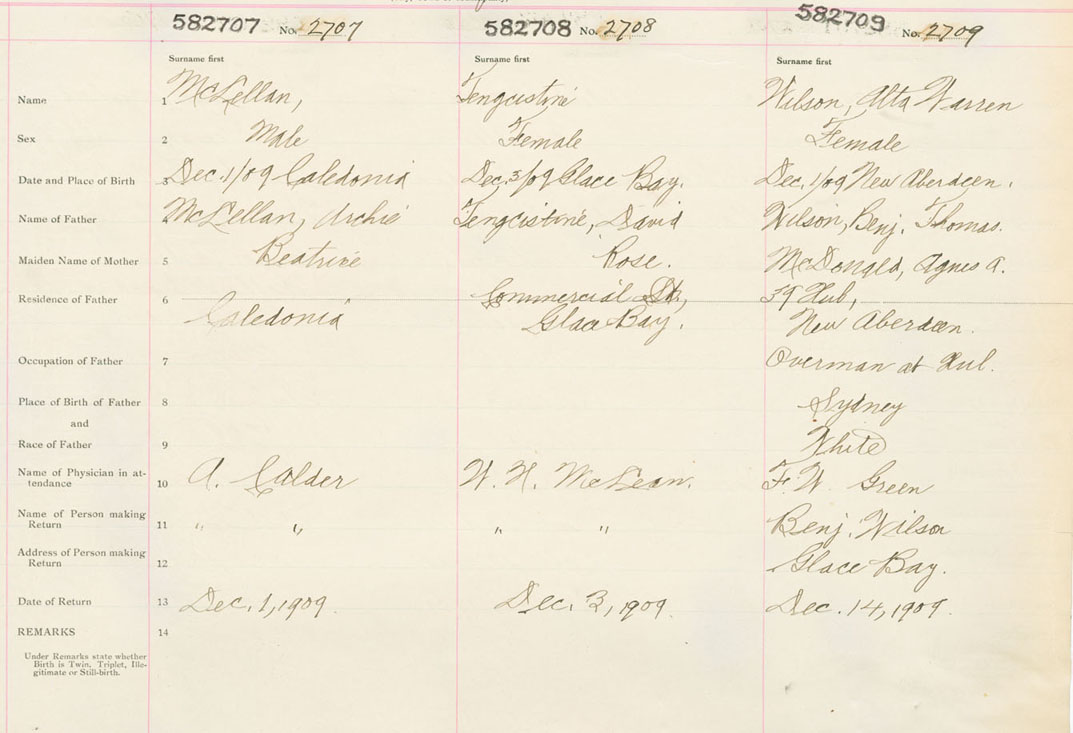 582707 No. 2707
582708 No. 2708
582709 No. 2709
Surname first
Surname first
Surname first
Name 1 McLellan,
Tengustine
Wilson, Alta Warren
Sex 2 Male
Female
Female
Date and Place of Birth 3 Dec. 1/09 Caledonia
Dec. 3/09 Glace Bay.
Dec. 1/09 New Aberdeen.
Name of Father 4 McLellan, Archie
Tengustine, David
Wilson, Benj. Thomas.
Maiden Name of Mother 5 Beatrice
Rose.
McDonald, Agnes A.
Residence of Father 6
Caledonia
Commercial St.,
Glace Bay.
Hub,
New Aberdeen.
Occupation of Father 7
Overman at Hub.
Place of Birth of Father 8
and
Sydney
Race of Father 9
White
Name of Physician in at-
tendance 10 A. Calder
W. H. McLean.
F. W. Green
Name of Person making
Return 11 " "
" "
Benj. Wilson
Address of Person making
Return 12
Glace Bay.
Date of Return 13 Dec. 1, 1909.
Dec. 3, 1909.
Dec. 14, 1909.
REMARKS 14
Under Remarks state whether
Birth is Twin, Triplet, Ille-
gitimate or Still-birth.